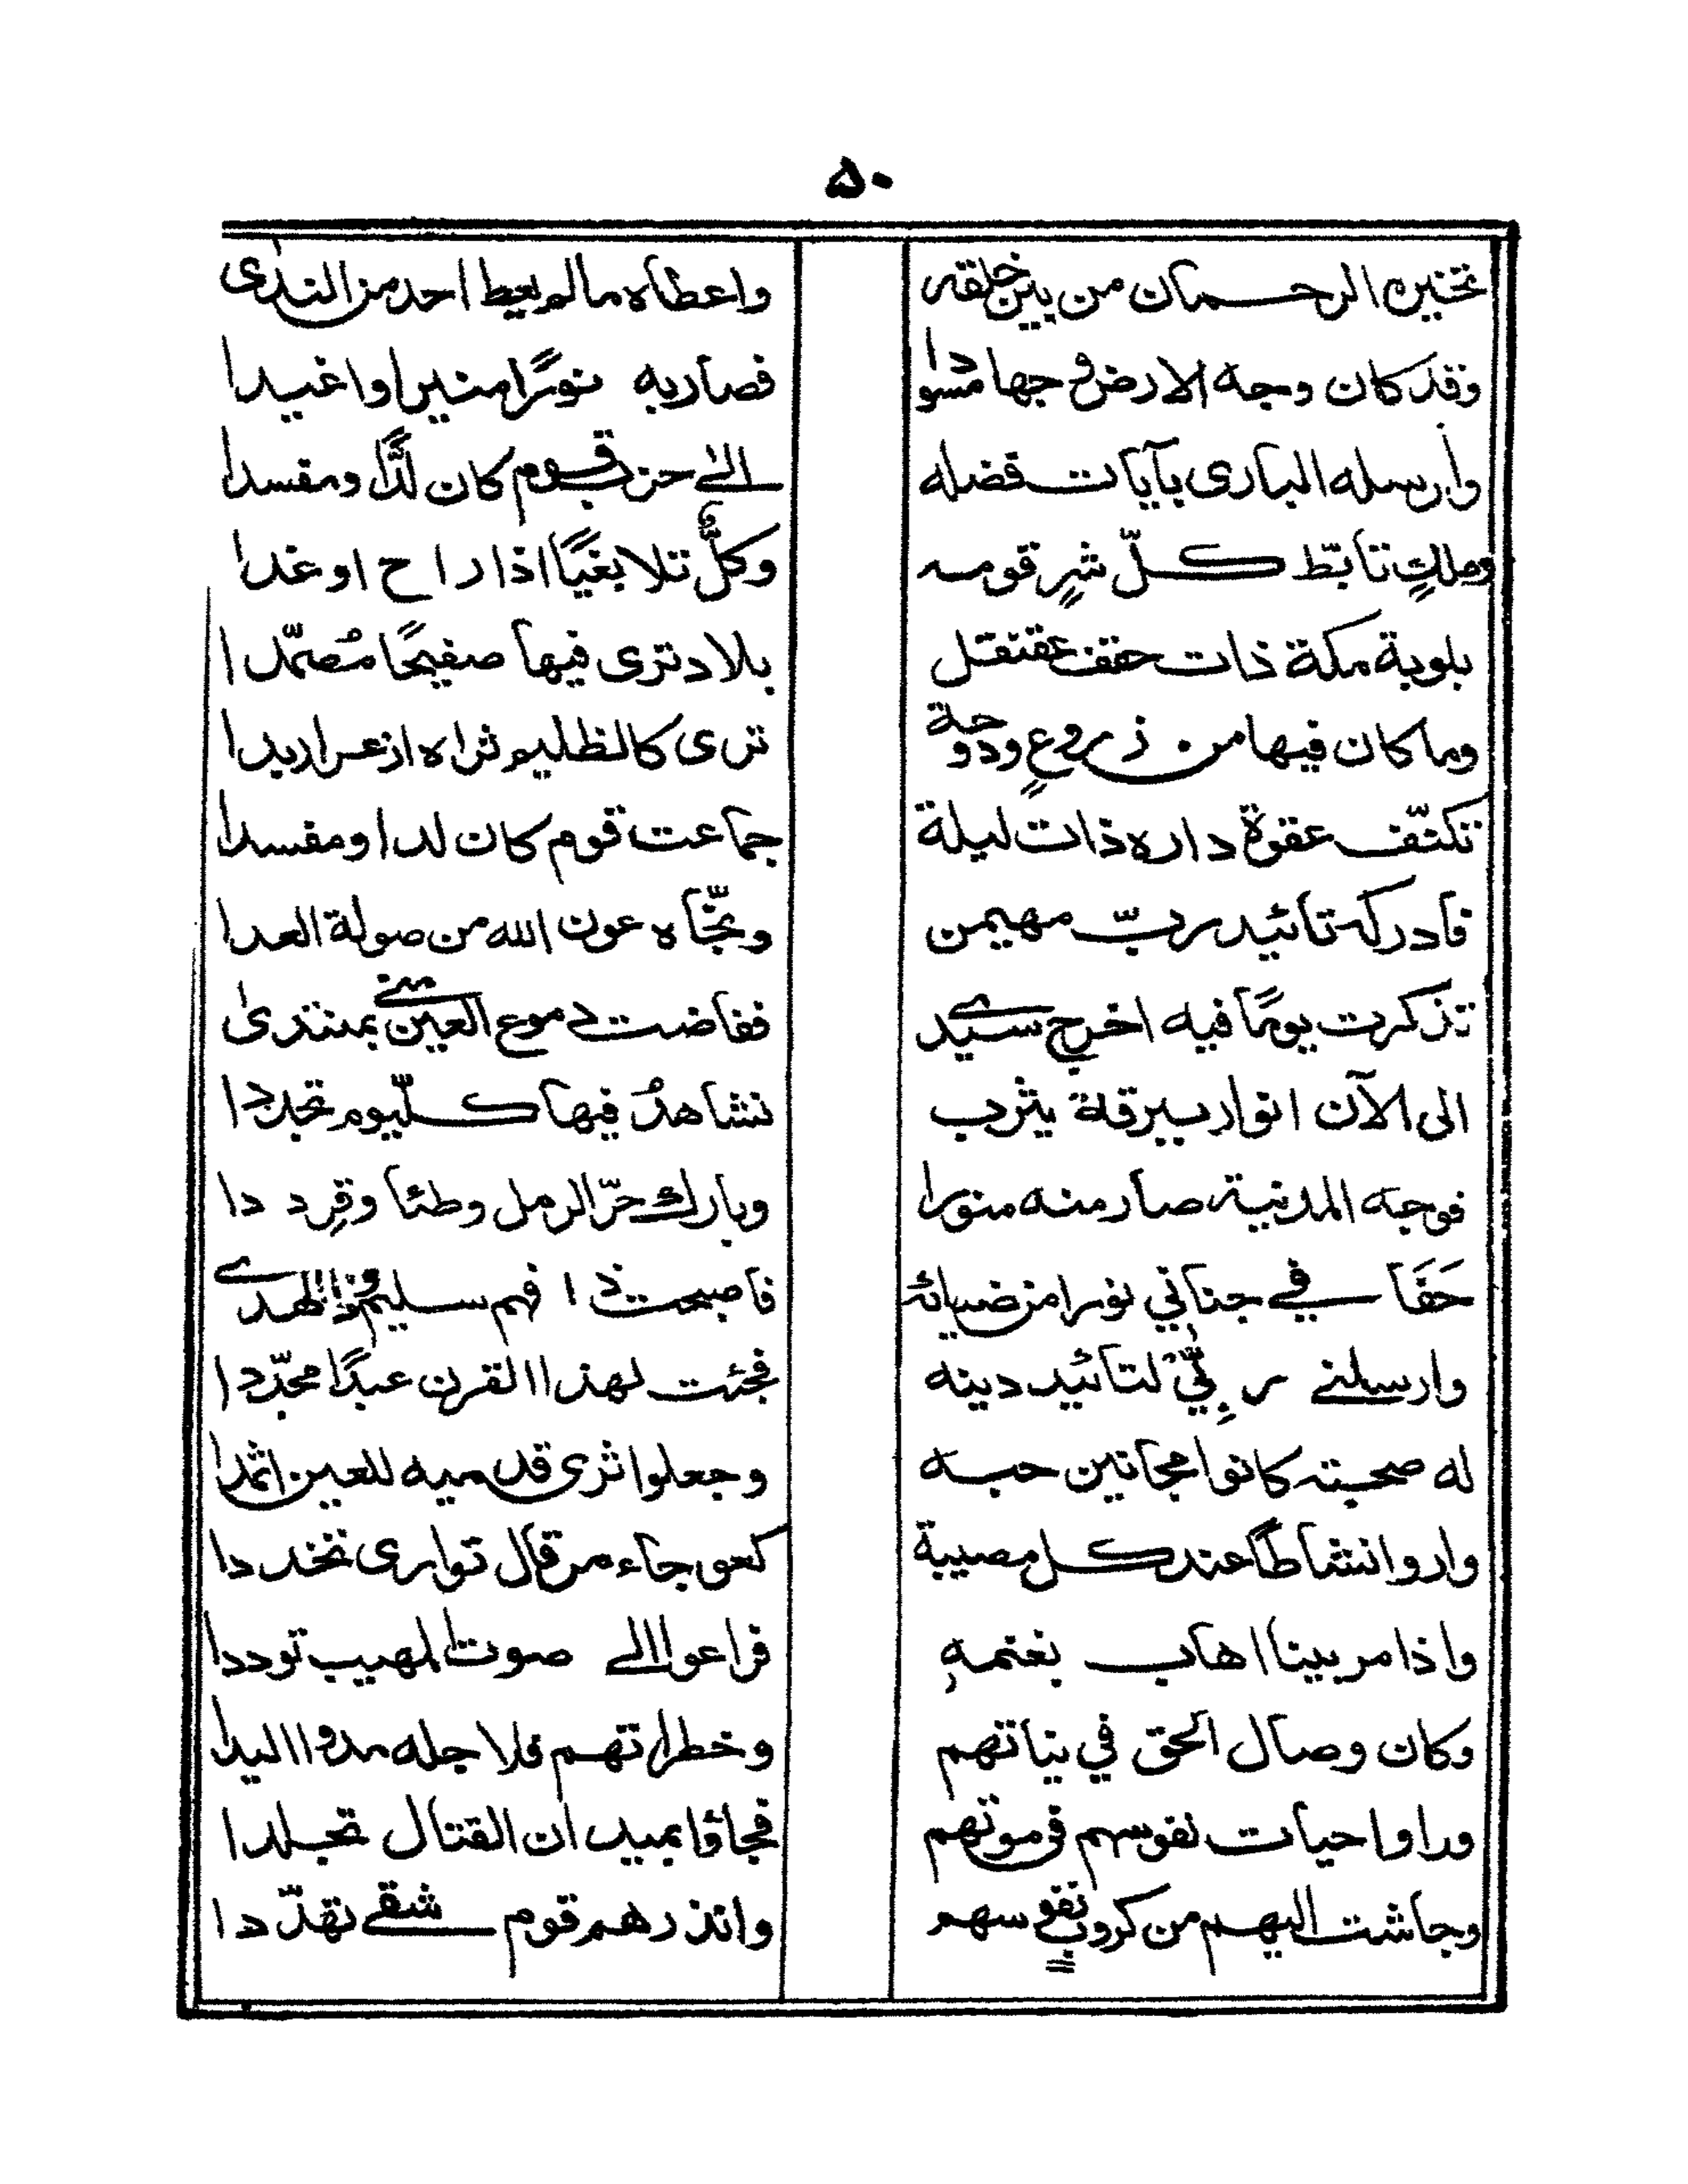 ۵۰
تخيره الرحمان من بين خلقه واعطاه مالم يعط احد من الندى
وقد كان وجه الارض وجها مسودا فصار به نورًا منيرا واغيدا
وارسله البارى بآيات فضله الى حزب قوم كان لُدًّا ومفسدا
وملكٍ تأبّط كلّ شرٍ قومه وكلٌّ تلا بغيًا اذا راح اوغدا
بلوبة مكة ذات حقف عقنقل بلاد ترى فيها صفيحًا مُصمّدا
وما كان فيها من زروعٍ ودوحة ترى كالظليم ثراه ازعر اربدا
تكنّف عقوة داره ذات ليلة جماعت قوم كان لدا ومفسدا
فادركه تائيد ربّ مهيمن ونجّاه عون الله من صولة العدا
تذكرت يومًا فيه اخرج سيدى ففاضت دموع العين منى بمنتدى
الى الآن انوار ببرقة يثرب نشاهدُ فيها كلّ يوم تجددا
فوجه المدنية صار منه منورا وبارك حرّ الرمل وطئا وقِرددا
حَفَا فى جناني نورا من ضيائه فاصبحت ذا فهم سليم وذا الهدى
وارسلنى ربِّي لتائيد دينه فجئت لهذا القرن عبدًا مجدّدا
له صحبته كانوا مجانين حبه وجعلوا ثرى قدميه للعين اثمدا
واروا نشاطًا عند كل مصيبة كعوجاء مرقال توارى تخددا
واذا مربينا اهاب بغنمهٖ فراعوا الى صوت المهيب توددا
وكان وصال الحق في نياتهم وخطراتهم فلاجله مدوا اليدا
وراوا حيات نفوسهم في موتهم فجاؤا بميدان القتال تجلدا
وجاشت اليهم من كروبٍ نفوسهم وانذرهم قوم شقى تهدّدا